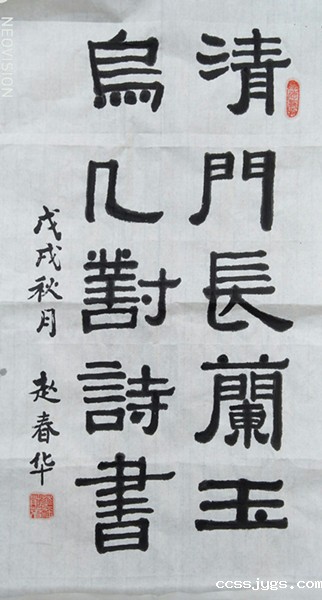 清門長蘭玉
烏几對詩書
戊戌秋月 赵春华
NEOVISION
ccssjygs.com